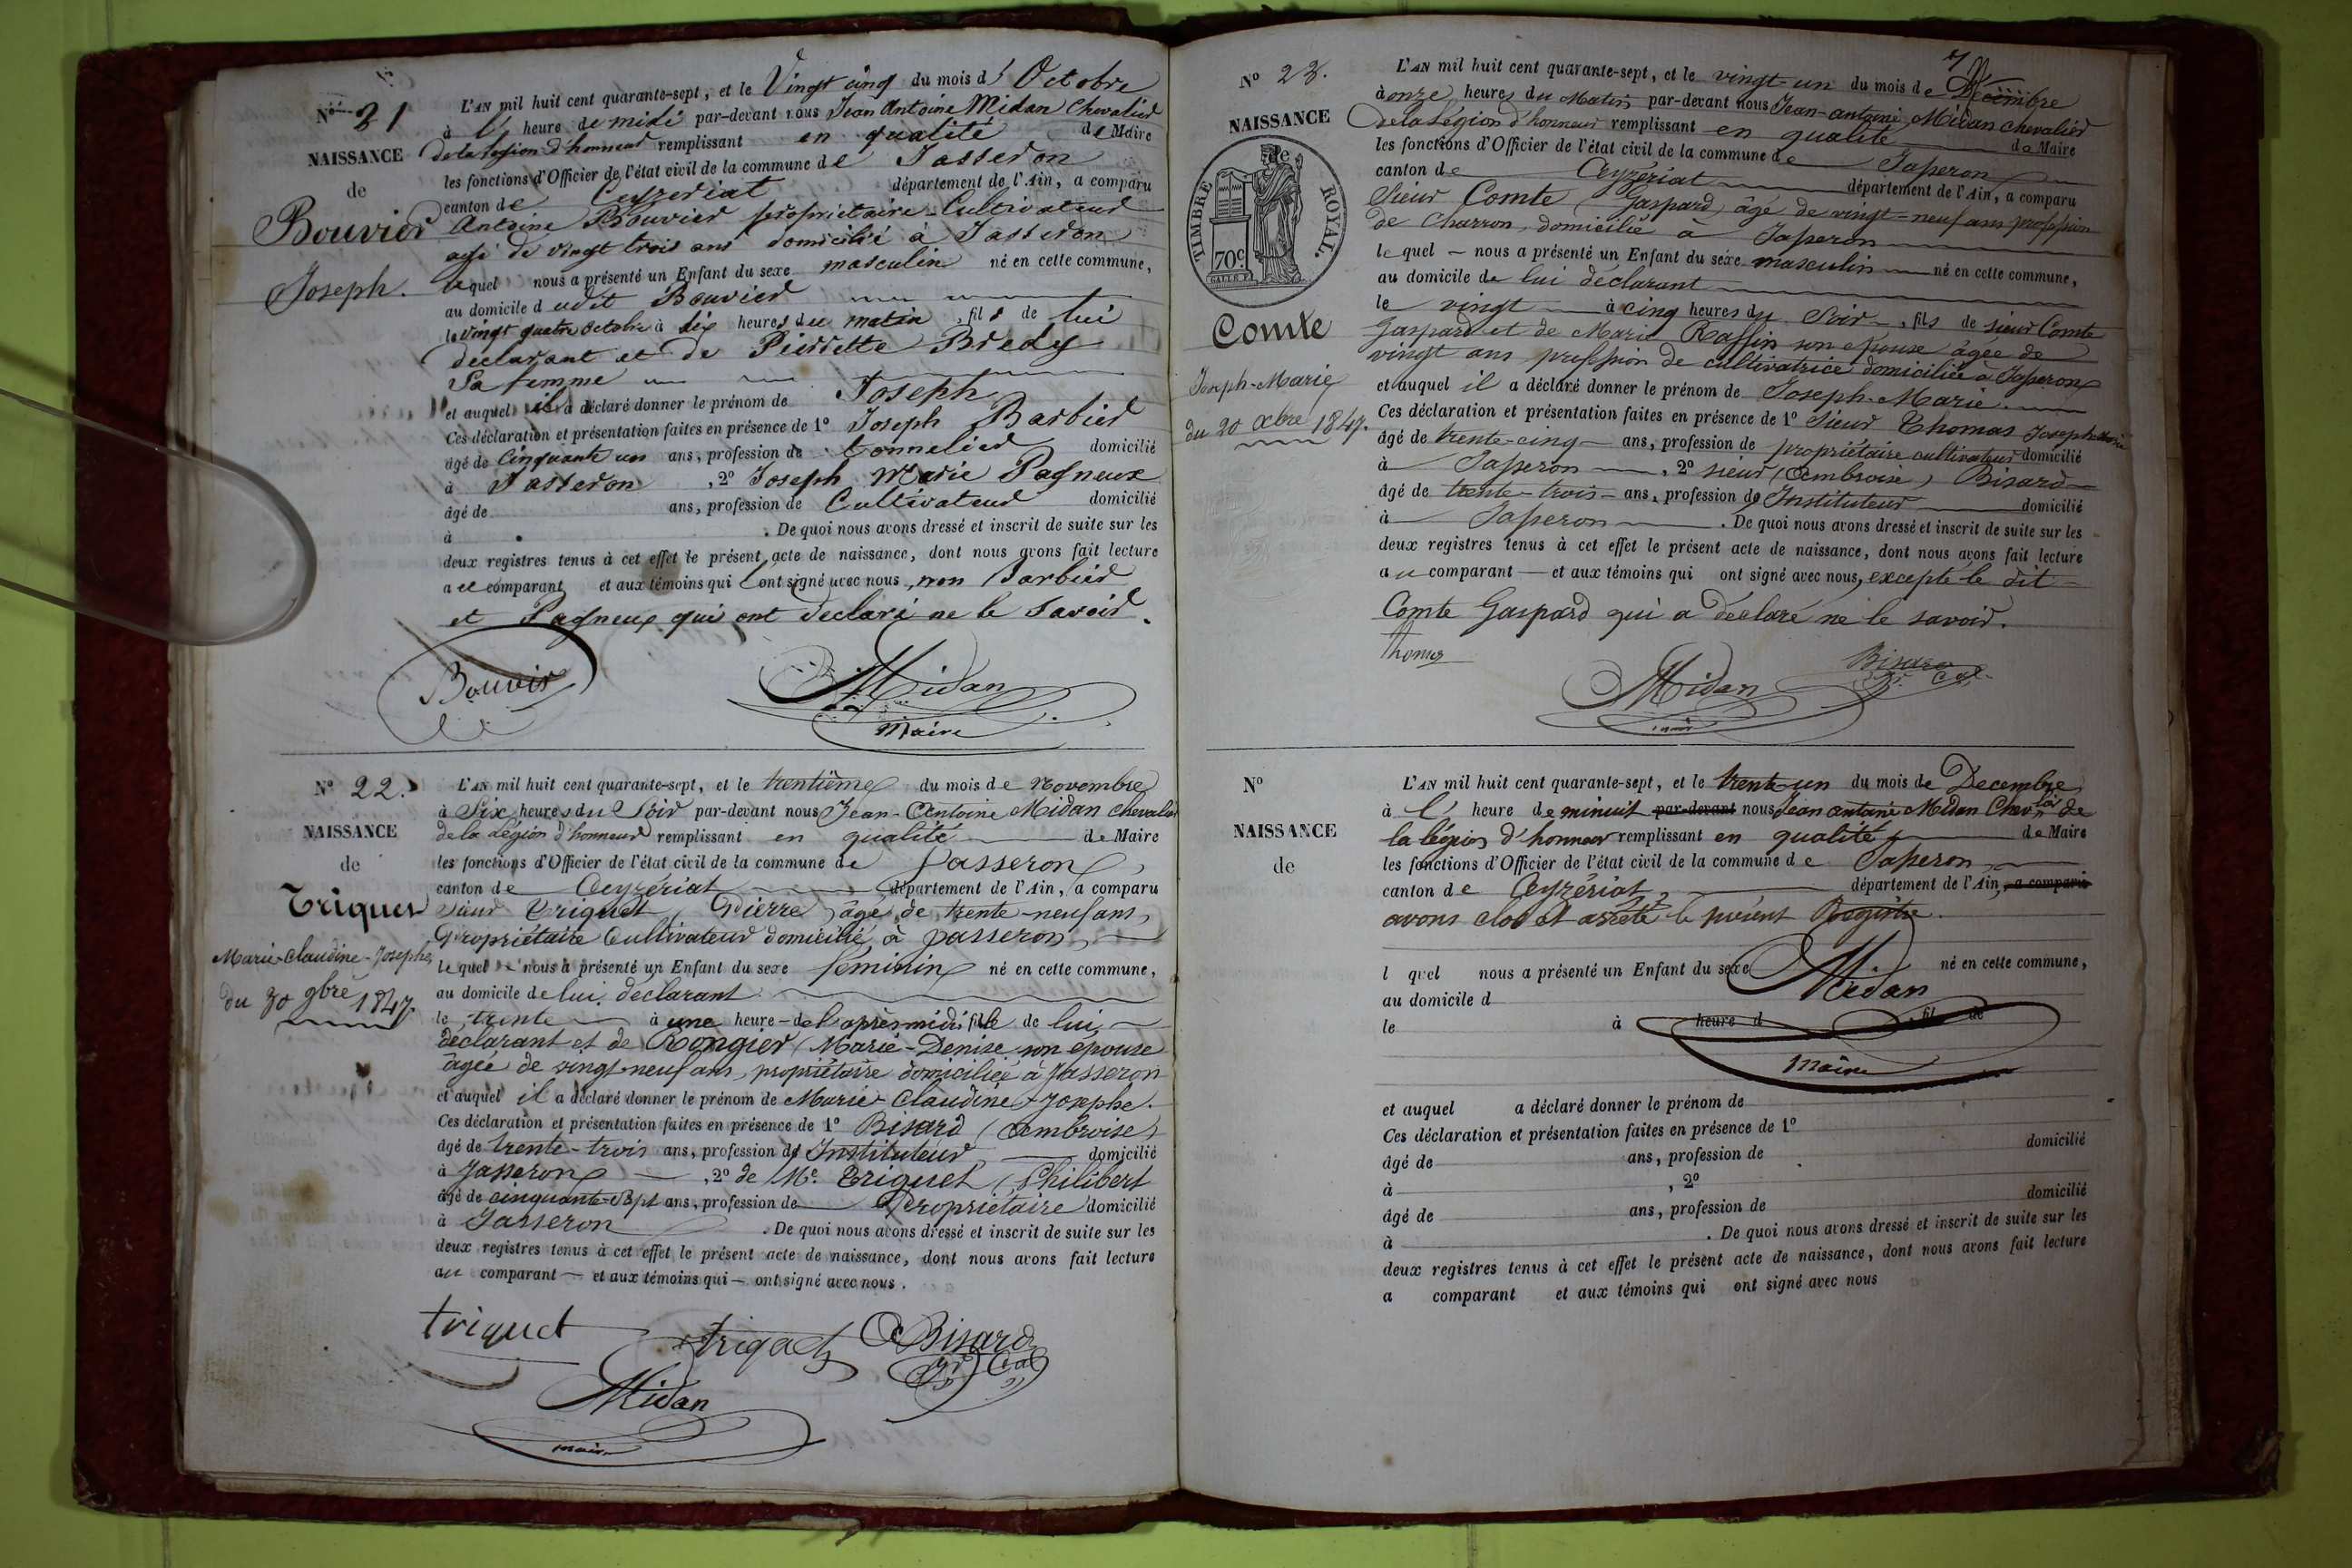 N° 21
NAISSANCE
de
Bouvier
Joseph.
L'AN mil huit cent quarante-sept, et le Vingt cinq du mois d' Octobre
à l' heure de midi par-devant nous Jean Antoine Midan Chevalier
de la légion d'honneur remplissant en qualité de Maire
les fonctions d'Officier de l'état civil de la commune de Jasseron
canton de Ceyzeriat département de l'Ain, a comparu
Antoine Bouvier propriétaire-Cultivateur
agé de vingt trois ans domicilié à Jasseron
lequel nous a présenté un Enfant du sexe masculin né en cette commune,
au domicile dudit Bouvier
le vingt quatre octobre à six heures du matin, fils de lui
déclarant et de Pierrette Bredy
sa femme
et auquel il a déclaré donner le prénom de Joseph
Ces déclaration et présentation faites en présence de 1° Joseph Barbier
âgé de Cinquante un ans, profession de tonnelier domicilié
à Jasseron, 2° Joseph Marie Pagneux
âgé de ans, profession de Cultivateur domicilié
à . De quoi nous avons dressé et inscrit de suite sur les
deux registres tenus à cet effet le présent acte de naissance, dont nous avons fait lecture
au comparant et aux témoins qui ont signé avec nous, non Barbier
et Pagneux qui ont déclaré ne le savoir.
Bouvier
Midan
Maire
N° 22.
NAISSANCE
de
Triquet
Marie-Claudine-Josephe,
du 30 9bre 1847.
L'AN mil huit cent quarante-sept, et le trentième du mois de Novembre
à Six heures du Soir par-devant nous Jean-Antoine Midan chevalier
de la Légion d'honneur remplissant en qualité de Maire
les fonctions d'Officier de l'état civil de la commune de Jasseron
canton de Ceyzériat département de l'Ain, a comparu
sieur Triquet, Pierre, âgé de trente-neuf ans,
Propriétaire Cultivateur domicilié à Jasseron
lequel nous a présenté un Enfant du sexe féminin né en cette commune,
au domicile de lui déclarant
le trente à une heure de l'après midi fille de lui
déclarant et de Rongier (Marie-Denise son épouse
âgée de vingt-neuf ans, propriétaire domiciliée à Jasseron
et auquel il a déclaré donner le prénom de Marie-Claudine-Josephe.
Ces déclaration et présentation faites en présence de 1° Bisard (Ambroise)
âgé de trente-trois ans, profession de Instituteur domicilié
à Jasseron, 2° de Me. Triquet (Philibert
âgé de cinquante-sept ans, profession de Propriétaire domicilié
à Jasseron . De quoi nous avons dressé et inscrit de suite sur les
deux registres tenus à cet effet le présent acte de naissance, dont nous avons fait lecture
au comparant et aux témoins qui ont signé avec nous.
triquet
triquet
Bisard
Midan
maire
N° 23.
NAISSANCE
de
TIMBRE ROYAL.
70c
Comte
Joseph-Marie
du 20 xbre 1847.
L'AN mil huit cent quarante-sept, et le vingt-un du mois de Décembre
à onze heures du Matin par-devant nous Jean-antoine Midan chevalier
de la Légion d'honneur remplissant en qualité de Maire
les fonctions d'Officier de l'état civil de la commune de Jasseron
canton de Ceyzériat département de l'Ain, a comparu
Sieur Comte (Gaspard) âgé de vingt-neuf ans profession
de Charron, domicilié à Jasseron
lequel nous a présenté un Enfant du sexe masculin né en cette commune,
au domicile de lui déclarant
le vingt à cinq heures du Soir, fils de sieur Comte
Gaspard et de Marie Raffin son épouse âgée de
vingt ans profession de cultivatrice domiciliée à Jasseron
et auquel il a déclaré donner le prénom de Joseph-Marie
Ces déclaration et présentation faites en présence de 1° Sieur Thomas Joseph Marie
âgé de trente-cinq ans, profession de propriétaire cultivateur domicilié
à Jasseron, 2° sieur (Ambroise) Bisard
âgé de trente-trois ans, profession de Instituteur domicilié
à Jasseron . De quoi nous avons dressé et inscrit de suite sur les
deux registres tenus à cet effet le présent acte de naissance, dont nous avons fait lecture
au comparant et aux témoins qui ont signé avec nous, excepté le dit
Comte Gaspard qui a déclaré ne le savoir.
Thomas
Midan
Bisard
maire
N°
NAISSANCE
de
L'AN mil huit cent quarante-sept, et le trente-un du mois de Decembre
à l' heure de minuit par-devant nous Jean antoine Midan Chevlier de
la légion d'honneur remplissant en qualité de Maire
les fonctions d'Officier de l'état civil de la commune de Jasseron
canton de Ceyzériat département de l'Ain, a comparu
avons clos et arrêté le présent Registre.
l quel nous a présenté un Enfant du sexe né en cette commune,
au domicile d
Midan
le à heure d , fil de
Maire
et auquel a déclaré donner le prénom de
Ces déclaration et présentation faites en présence de 1°
âgé de ans, profession de domicilié
à , 2°
âgé de ans, profession de domicilié
à . De quoi nous avons dressé et inscrit de suite sur les
deux registres tenus à cet effet le présent acte de naissance, dont nous avons fait lecture
a comparant et aux témoins qui ont signé avec nous